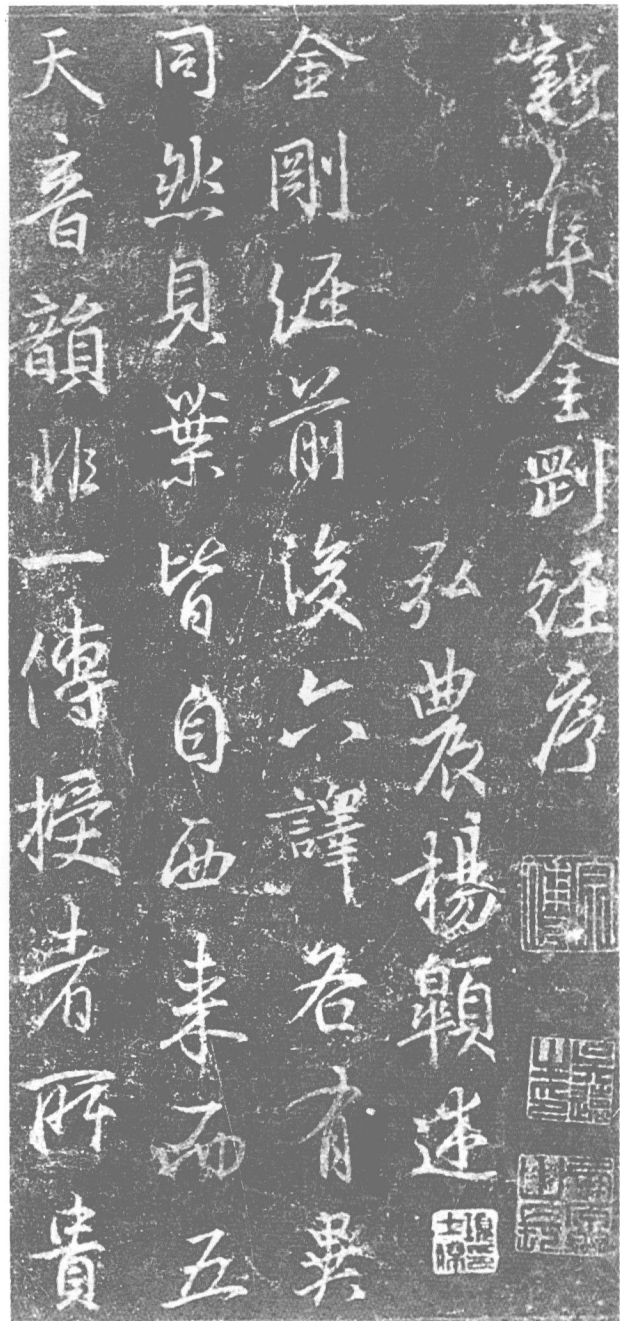 新集金剛經序
弘農楊顗述
金剛經前後六譯各有異
同然貝葉皆自西来而五
天音韻非一傳授者所貴